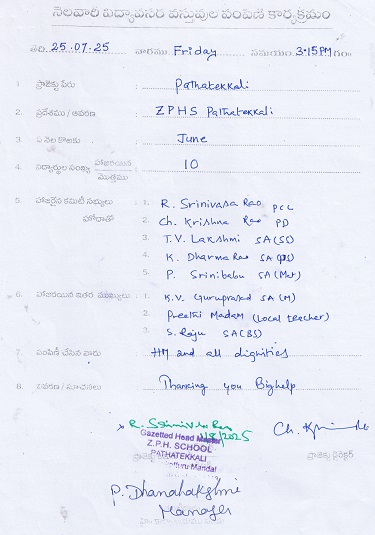 నెలవారీ విద్యావసర వస్తువుల పంపిణీ కార్యక్రమం
తేది: 25.07.25 వారము Friday సమయం 3:15PM గం॥
1. ప్రాజెక్టు పేరు : Pathatekkali
2. ప్రదేశము / ఆవరణ : ZPHS Pathatekkali
3. ఏ నెల కొఱకు : June
4. విద్యార్థుల సంఖ్య హాజరయిన మొత్తము : 10
5. హాజరైన కమిటీ సభ్యులు 1. R. Srinivasa Rao PCL
హోదాతో 2. Ch. Krishna Rao PD
3. T.V. Lakshmi SA (SS)
4. K. Dharma Rao SA
5. P. Srinibabu SA
6. హాజరయిన ఇతర సభ్యులు : 1. K.V. Guruprasad SA (M)
2. Preethi Madam (Local teacher)
3. S. Raju SA (BS)
7. పంపిణీ చేసిన వారు : HM and all dignities
8. వివరణ / సూచనలు : Thanking you Bighelp
R. Srinivasa Rao
Gazetted Head Master 1/8/2025 Ch.
Z.P.H. SCHOOL
PATHATEKKALI
ప్రాజెక్టు Mandal ప్రాజెక్టు డైరెక్టర్
P. Dhanalakshmi
Manager